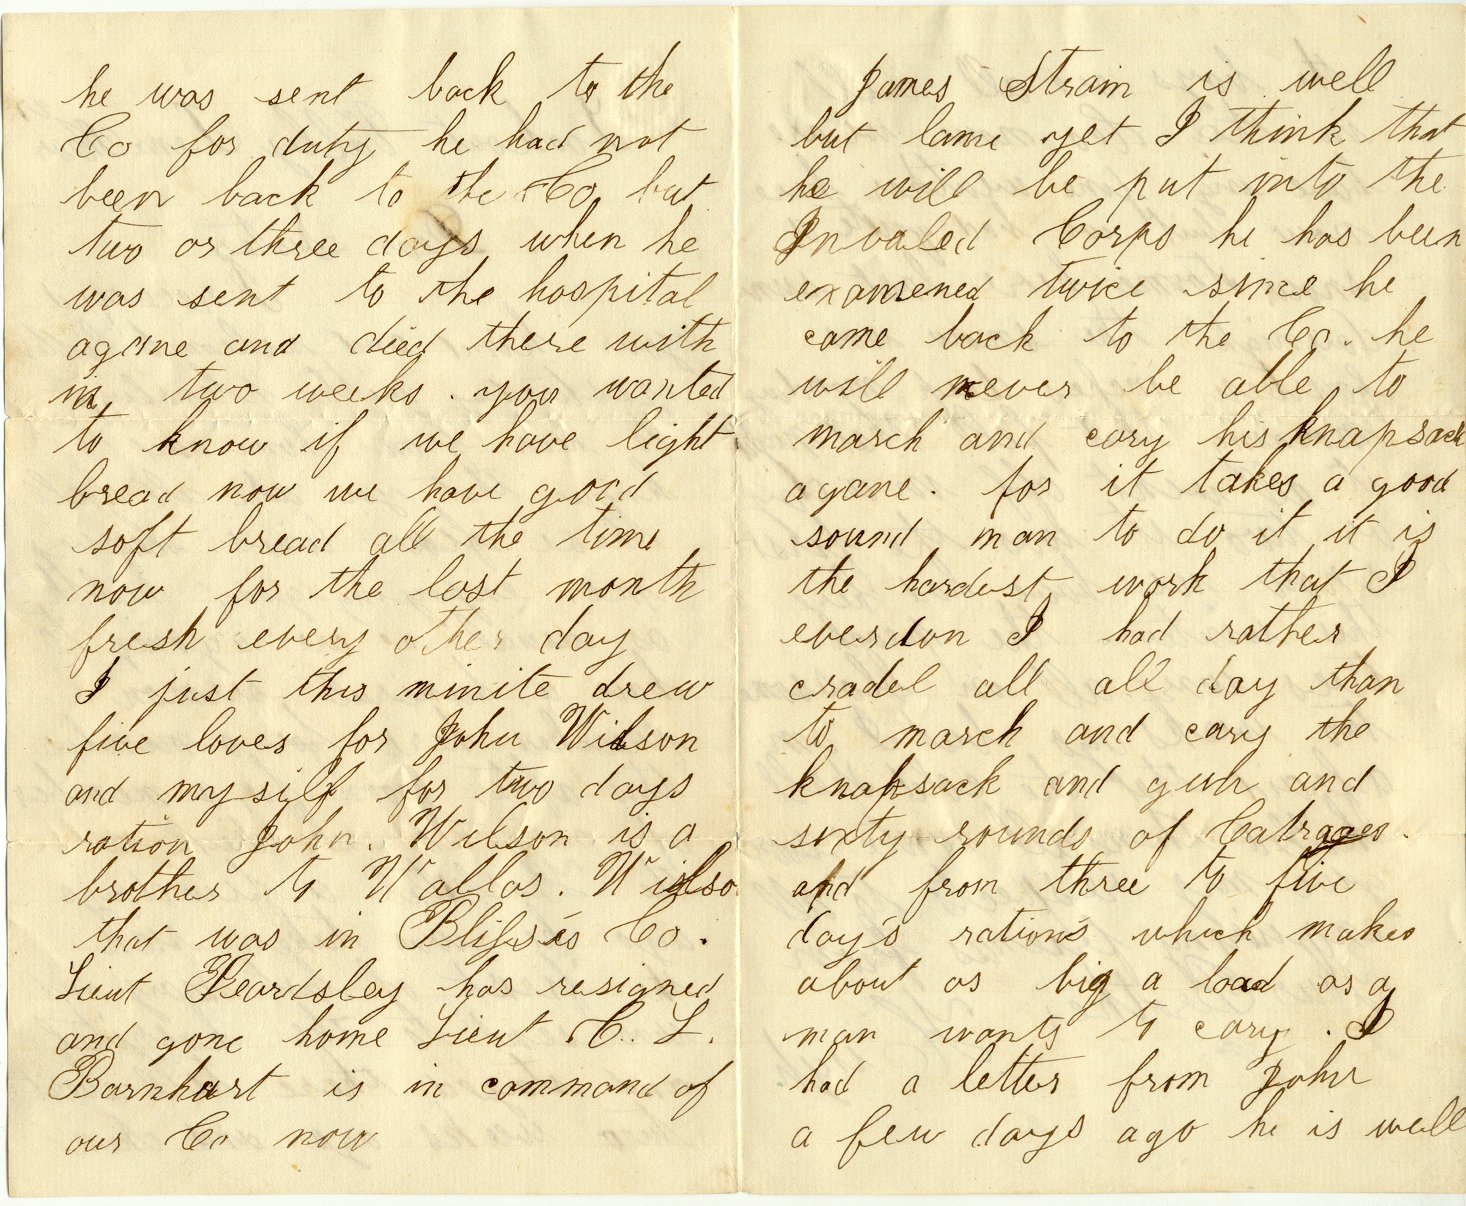 he was sent back to the
Co for duty he had not
been back to the Co but
two or three days when he
was sent to the hospital
agane and died there with
in two weeks. you wanted
to know if we have light
bread now we have good
soft bread all the time
now for the last month
fresh every other day
I just this minite drew
five loves for John Wilson
and mysilf for two days
ration John. Wilson is a
brother to Wallas. Wilso
that was in Bliss's Co.
Lieut Beardsley has resigned
and gone home Lieut C. L.
Barnhart is in command of
our Co now
James Strain is well
but lame yet I think that
he will be put into the
Invaled Corps he has been
examened twice since he
came back to the Co. he
will never be able to
march and cary his knapsack
agane. for it takes a good
sound man to do it it is
the hardest work that I
ever don I had rather
cradel all all day than
to march and cary the
knapsack and gun and
sixty rounds of Catrages.
and from three to five
day's ration's which makes
about as big a load as a
man wants to cary. I
had a letter from John
a few days ago he is well